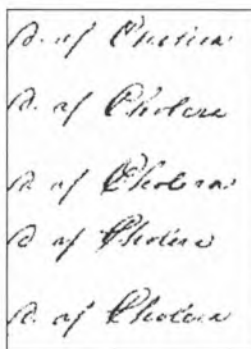 D. af Cholera
D. af Cholera
D. af Cholera
D af Cholera
D. af Cholera